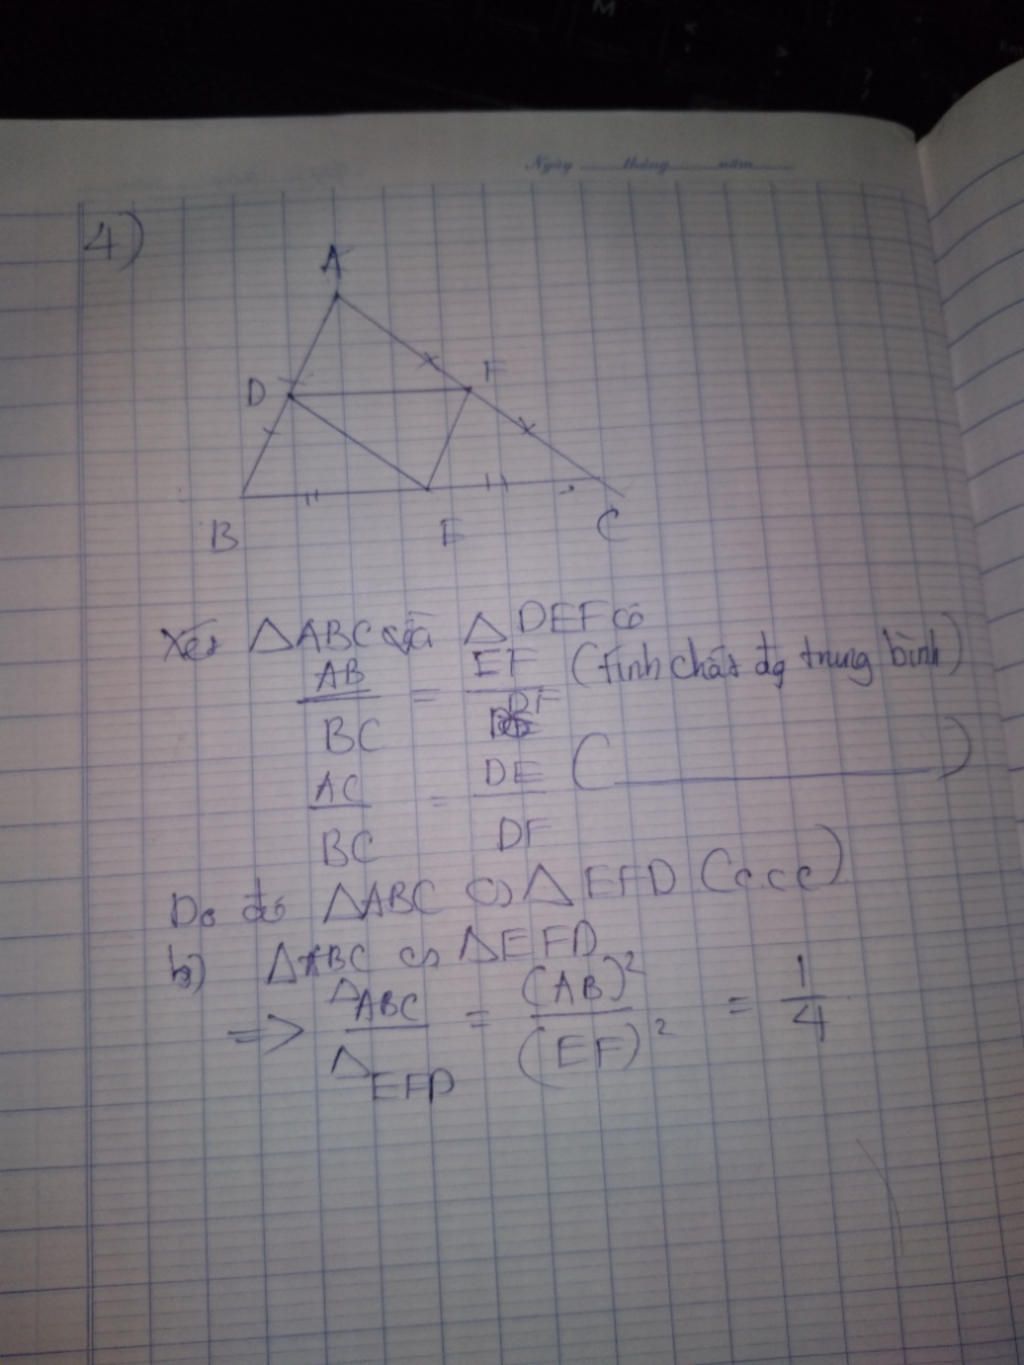 Ngày tháng năm
4)
A
D F
B E C
Xét △ABC và △DEF có
AB/BC = EF/DF (tính chất đg trung bình)
AC/BC = DE/DF ( )
Do đó △ABC ∽ △EFD (c.c.c)
b) △ABC ∽ △EFD
=> △ABC/△EFD = (AB)²/(EF)² = 1/4